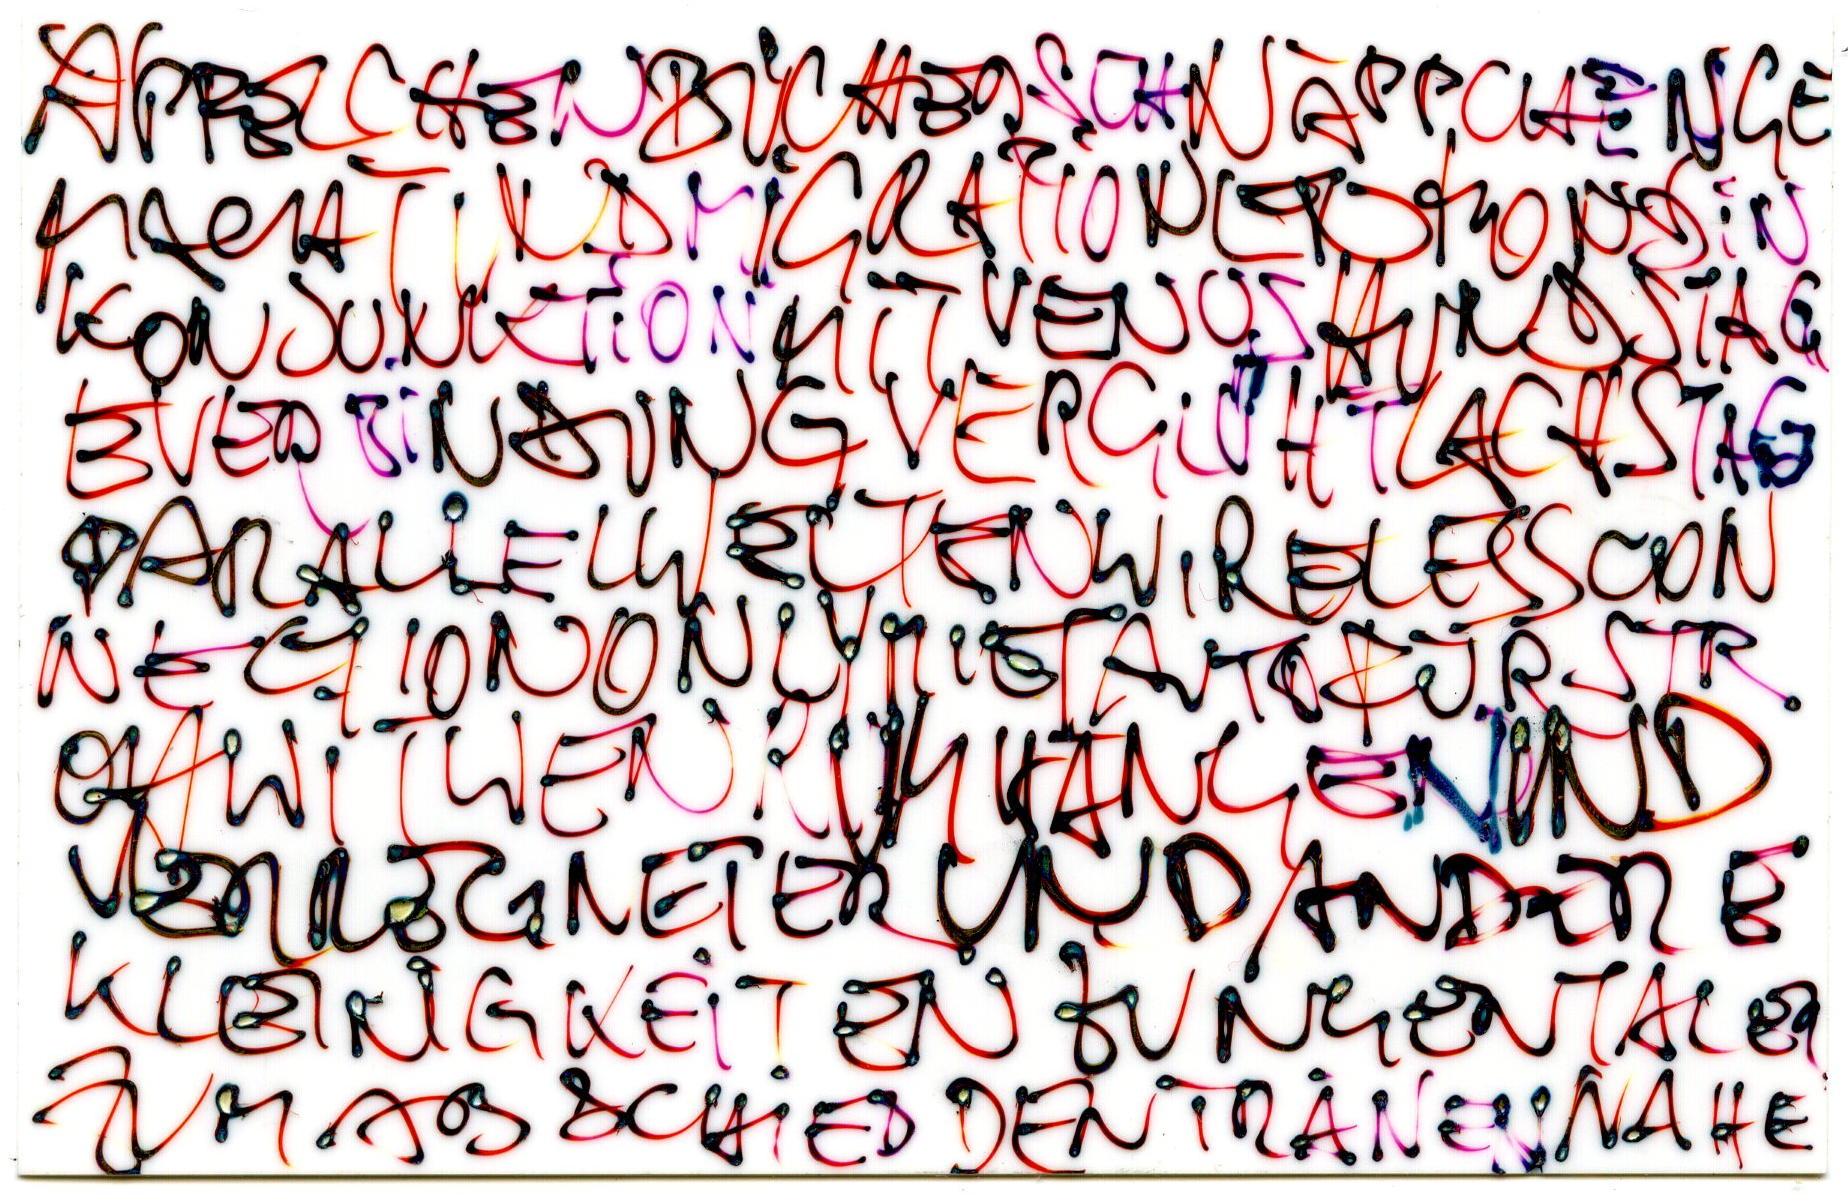 ÄPPELCHENBÜCHERSCHNÄPPCHENGE
MACHT UND MIGRATION MOND IN
KONJUNKTION MIT VENUS HUNDSTAG
E VERBINDUNG VERGLÜHT LACHSTAG
PARALLELWELTEN WIRELESS CON
NECTION ONLY MIETAUTO FÜR STR
OHWITWEN RUMHÄNGEN UND
VERREGNETER UND ANDERE
KLEINIGKEITEN
ZUM ABSCHIED DEN TRÄNEN NAHE